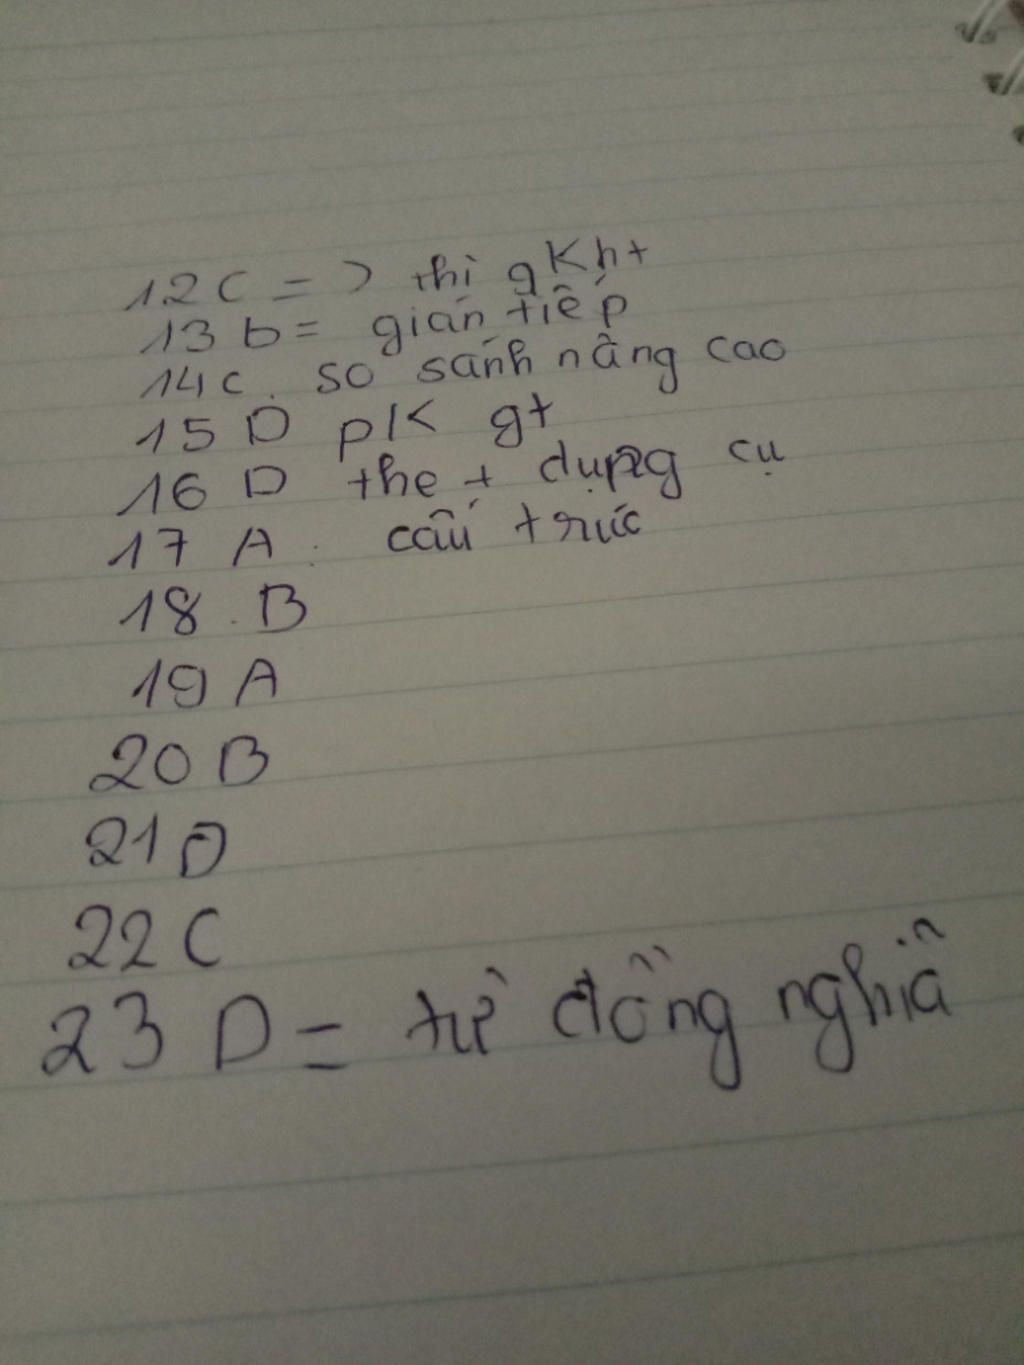 12C => thì qKht
13 b = gián tiếp
14c. so sánh nâng cao
15 D pK gt
16 D the + dụng cụ
17 A. cấu trúc
18. B
19 A
20 B
21 D
22 C
23 D = từ đồng nghĩã